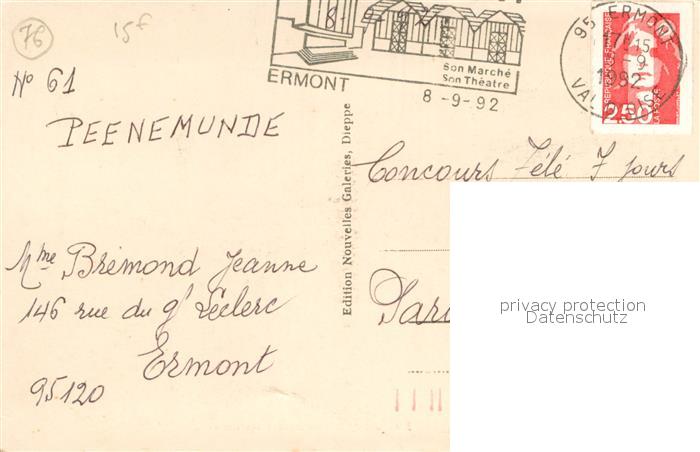 76
15F
ERMONT
Son Marché
Son Théatre
8-9-92
95 ERMONT
15
9
1992
VAL D'OISE
REPUBLIQUE FRANÇAISE
2,50
N° 61
PEENEMUNDE
Mme Brémond Jeanne
146 rue du gl Léclerc
Ermont
95120
Edition Nouvelles Galeries, Dieppe
Concours Télé 7 jours
privacy protection
Datenschutz